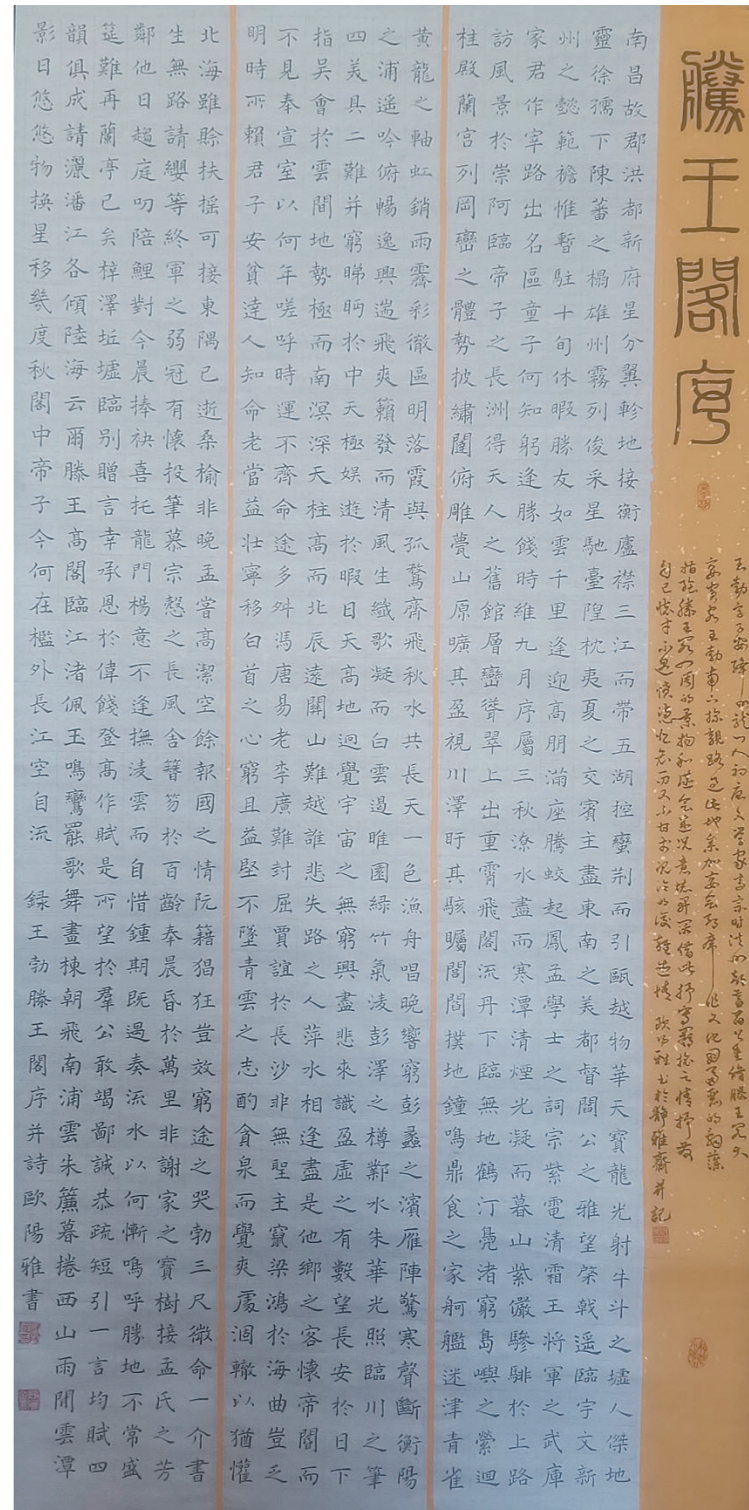 滕王閣序
王勃字子安絳州龍門人初唐文學家高宗時洪州都督閻公重修滕王閣大
宴賓客王勃南下探親路過此地參加宴會即席作文他因的詞藻
描繪滕王閣四周的景物和宴會盛況借此抒寫之情抒發
自己懷才不遇而又不甘的複雜感情 歐陽雅書於靜雅齋并記
南昌故郡洪都新府星分翼軫地接衡廬襟三江而帶五湖控蠻荊而引甌越物華天寶龍光射牛斗之墟人傑地
靈徐孺下陳蕃之榻雄州霧列俊采星馳臺隍枕夷夏之交賓主盡東南之美都督閻公之雅望棨戟遥臨宇文新
州之懿範襜惟暫駐十旬休暇勝友如雲千里逢迎高朋滿座騰蛟起鳳孟學士之詞宗紫電清霜王將軍之武庫
家君作宰路出名區童子何知躬逢勝餞時維九月序屬三秋潦水盡而寒潭清煙光凝而暮山紫儼驂騑於上路
訪風景於崇阿臨帝子之長洲得天人之舊館層巒聳翠上出重霄飛閣流丹下臨無地鶴汀鳧渚窮島嶼之縈迴
桂殿蘭宮列岡巒之體勢披繡闥俯雕甍山原曠其盈視川澤盱其駭矚閭閻撲地鐘鳴鼎食之家舸艦迷津青雀
黃龍之軸虹銷雨霽彩徹區明落霞與孤鶩齊飛秋水共長天一色漁舟唱晚響窮彭蠡之濱雁陣驚寒聲斷衡陽
之浦遥吟俯暢逸興遄飛爽籟發而清風生纖歌凝而白雲遏睢園綠竹氣凌彭澤之樽鄴水朱華光照臨川之筆
四美具二難并窮睇眄於中天極娛遊於暇日天高地迥覺宇宙之無窮興盡悲來識盈虛之有數望長安於日下
指吳會於雲間地勢極而南溟深天柱高而北辰遠關山難越誰悲失路之人萍水相逢盡是他鄉之客懷帝閽而
不見奉宣室以何年嗟呼時運不齊命途多舛馮唐易老李廣難封屈賈誼於長沙非無聖主竄梁鴻於海曲豈乏
明時所賴君子安貧達人知命老當益壯寧移白首之心窮且益堅不墜青雲之志酌貪泉而覺爽處涸轍以猶懽
北海雖賒扶搖可接東隅已逝桑榆非晚孟嘗高潔空餘報國之情阮籍猖狂豈效窮途之哭勃三尺微命一介書
生無路請纓等終軍之弱冠有懷投筆慕宗愨之長風舍簪笏於百齡奉晨昏於萬里非謝家之寶樹接孟氏之芳
鄰他日趨庭叨陪鯉對今晨捧袂喜托龍門楊意不逢撫凌雲而自惜鍾期既過奏流水以何慚嗚呼勝地不常盛
筵難再蘭亭已矣梓澤坵墟臨別贈言幸承恩於偉餞登高作賦是所望於羣公敢竭鄙誠恭疏短引一言均賦四
韻俱成請灑潘江各傾陸海云爾滕王高閣臨江渚佩玉鳴鸞罷歌舞畫棟朝飛南浦雲朱簾暮捲西山雨閒雲潭
影日悠悠物換星移幾度秋閣中帝子今何在檻外長江空自流 錄王勃滕王閣序并詩歐陽雅書